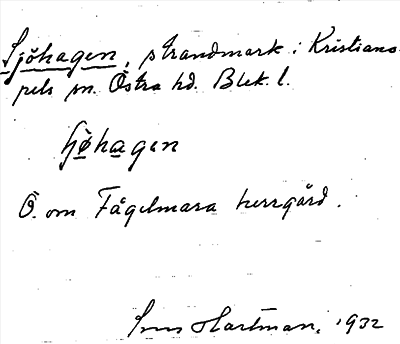 Sjöhagen, strandmark i Kristiano-
pels sn. Östra hd. Blek. l.
hö̀hagen
Ö. om Fågelmara herrgård.
Hartman, 1932